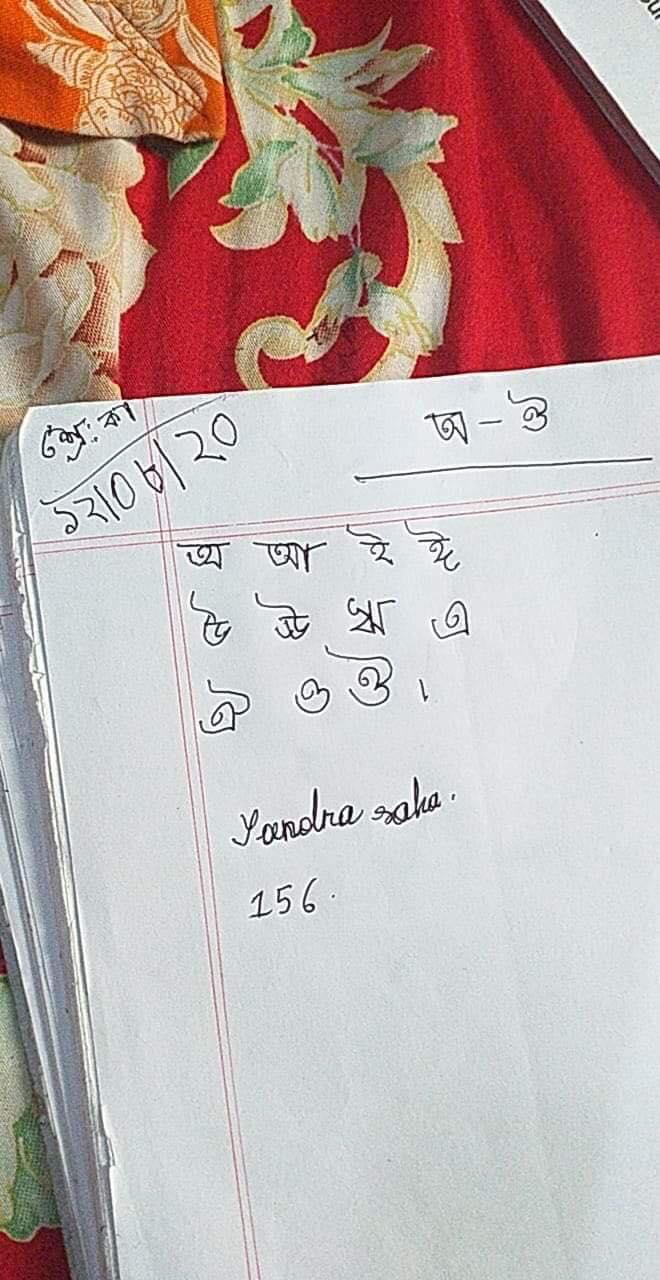 শ্রে: কা
১২/০৮/20
অ - ঔ
অ আ ই ঈ
উ ঊ ঋ এ
ঐ ও ঔ।
Sandra saha.
156.